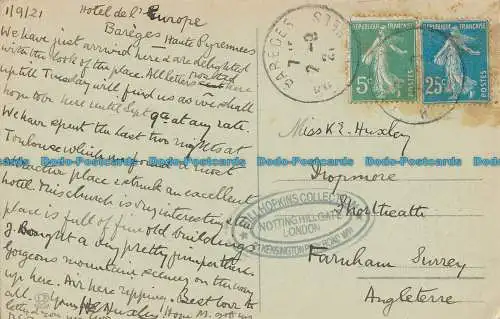 1/9/21 Hotel de l'Europe
Barèges Haute Pyrennees
We have just arrived here & are delighted
with the look of the place. All letters posted
up till Tuesday will find us as we shall
hope to be here until Sept 9th at any rate.
We have spent the last two nights at
Toulouse which was a most
attractive place & struck an excellent
hotel. This church is very interesting &
place is full of fine old buildings
I bought a very pretty jumper there.
Gorgeous mountain scenery on the way
up here. Air here ripping. Best love to
all. Yours
Huxley
BAREGES
REPUBLIQUE FRANÇAISE
5c
POSTES
REPUBLIQUE FRANÇAISE
25c
POSTES
Miss K E. Huxley
Propmore
Shortheath
Farnham Surrey
Angleterre
HOPKINS COLLECTION
NOTTING HILL GATE
LONDON
KENSINGTON PARK ROAD W11
Dodo-Postcards Dodo-Postcards Dodo-Postcards Dodo-Postcards Dodo-Postcards